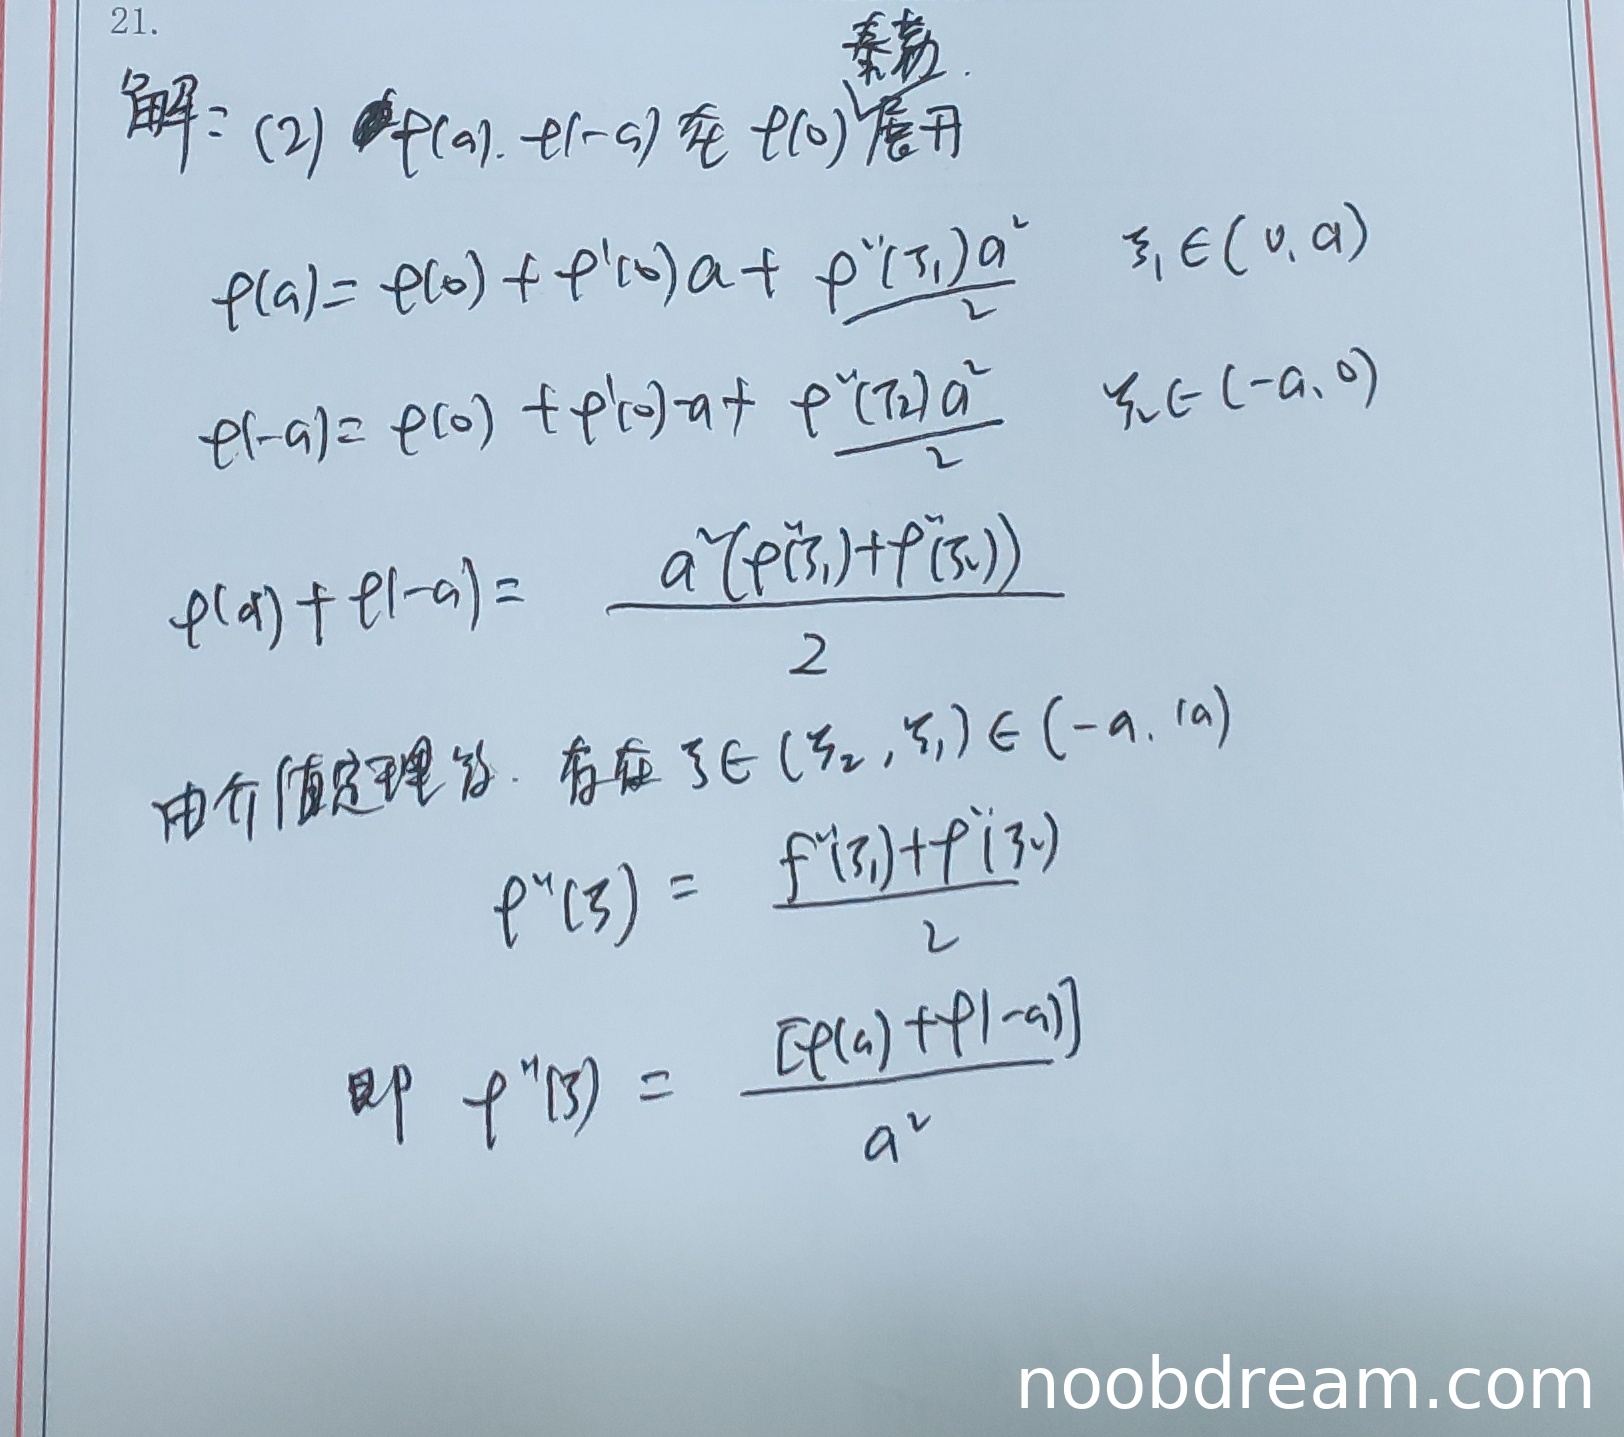 21.
泰勒.
解: (2) f(a). f(-a) 在 f(0) 展开
f(a) = f(0) + f'(0)a + f''(ξ₁)a²/2 ξ₁∈(0,a)
f(-a) = f(0) + f'(0)-a + f''(ξ₂)a²/2 ξ₂∈(-a,0)
f(a) + f(-a) = a²(f''(ξ₁)+f''(ξ₂))/2
由介值定理 存在 ξ∈(ξ₂,ξ₁)∈(-a,a)
f''(ξ) = f''(ξ₁)+f''(ξ₂)/2
即 f''(ξ) = [f(a)+f(-a)]/a²
noobdream.com